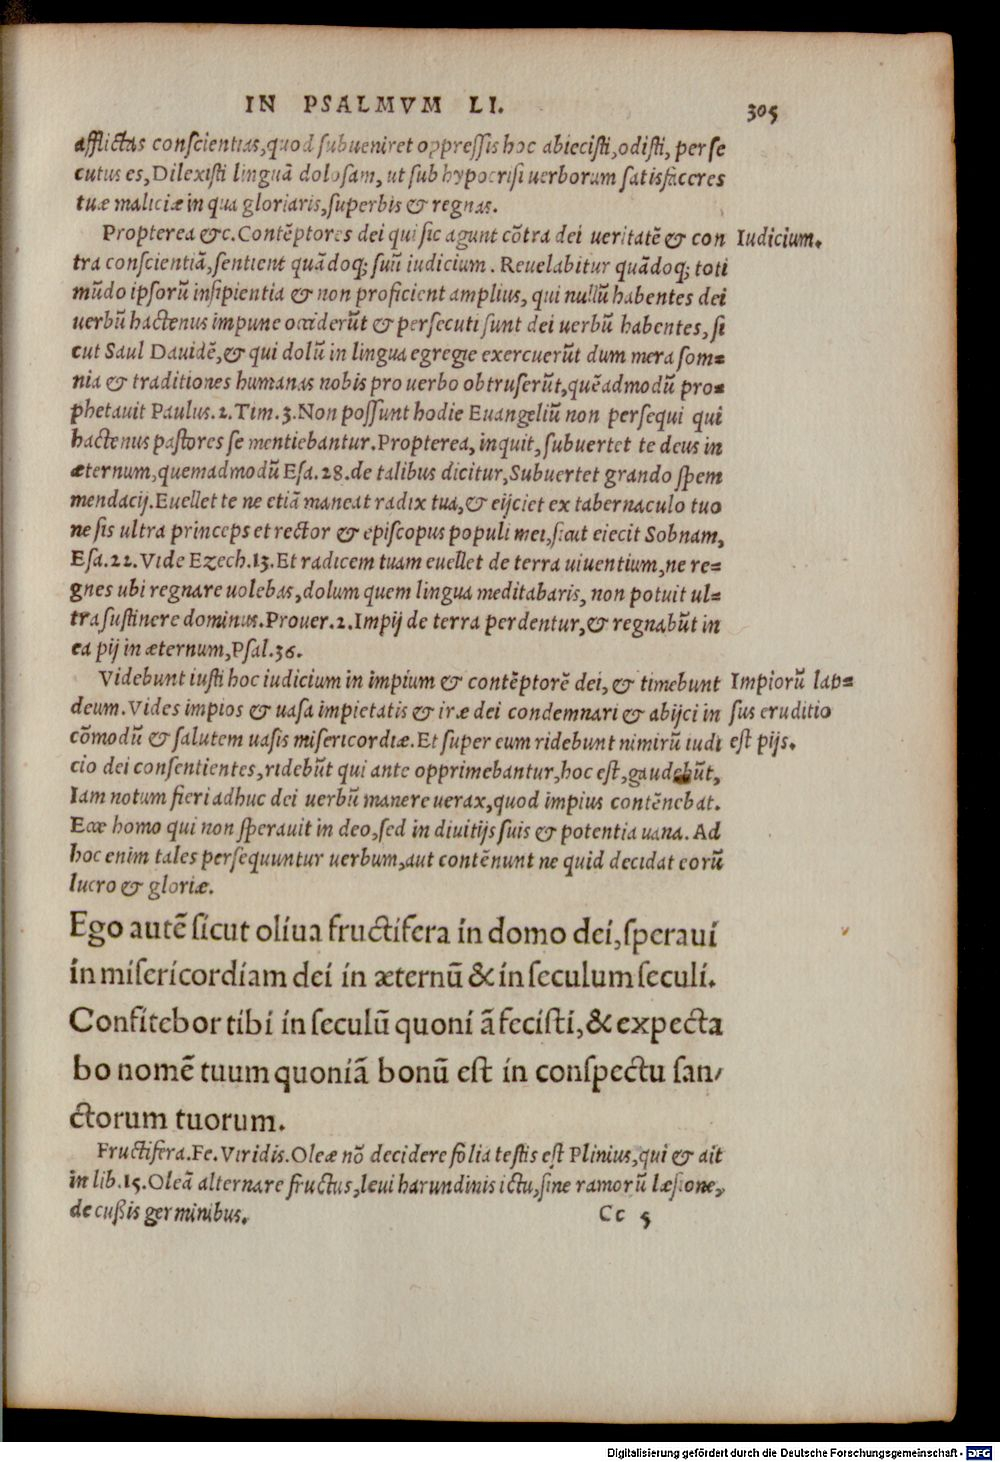 IN PSALMVM LI. 305
afflictas conscientias, quod subueniret oppressis hoc abiecisti, odisti, perse
cutus es, Dilexisti linguã dolosam, ut sub hypocrisi uerborum satisfaceres
tuæ maliciæ in qua gloriaris, superbis & regnas.
Propterea &c. Contẽptores dei qui sic agunt cõtra dei ueritatẽ & con
Iudicium.
tra conscientiã, sentient quãdoq; suũ iudicium. Reuelabitur quãdoq; toti
mũdo ipsorũ insipientia & non proficient amplius, qui nullũ habentes dei
uerbũ hactenus impune occiderũt & persecuti sunt dei uerbũ habentes, si
cut Saul Dauidẽ, & qui dolũ in lingua egregie exercuerũt dum mera som=
nia & traditiones humanas nobis pro uerbo obtruserũt, quẽadmodũ pro=
phetauit Paulus. 2. Tim. 3. Non possunt hodie Euangeliũ non persequi qui
hactenus pastores se mentiebantur. Propterea, inquit, subuertet te deus in
æternum, quemadmodũ Esa. 28. de talibus dicitur, Subuertet grando spem
mendacij. Euellet te ne etiã maneat radix tua, & eijciet ex tabernaculo tuo
ne sis ultra princeps et rector & episcopus populi mei, sicut eiecit Sobnam,
Esa. 22. Vide Ezech. 13. Et radicem tuam euellet de terra uiuentium, ne re=
gnes ubi regnare uolebas, dolum quem lingua meditabaris, non potuit ul=
tra sustinere dominus. Prouer. 2. Impij de terra perdentur, & regnabũt in
ea pij in æternum, Psal. 36.
Videbunt iusti hoc iudicium in impium & contẽptorẽ dei, & timebunt
Impiorũ lap=
deum. Vides impios & uasa impietatis & iræ dei condemnari & abijci in
sus eruditio
cõmodũ & salutem uasis misericordiæ. Et super eum ridebunt nimirũ iudi
est pijs.
cio dei consentientes, ridebũt qui ante opprimebantur, hoc est, gaudebũt,
Iam notum fieri adhuc dei uerbũ manere uerax, quod impius contẽnebat.
Ecce homo qui non sperauit in deo, sed in diuitijs suis & potentia uana. Ad
hoc enim tales persequuntur uerbum, aut contẽnunt ne quid decidat eorũ
lucro & gloriæ.
Ego autẽ sicut oliua fructifera in domo dei, speraui
in misericordiam dei in æternũ & in seculum seculi.
Confitebor tibi in seculũ quoni ã fecisti, & expecta
bo nomẽ tuum quoniã bonũ est in conspectu san/
ctorum tuorum.
Fructifera. Fe. Viridis. Oleæ nõ decidere folia testis est Plinius, qui & ait
in lib. 15. Oleã alternare fructus, leui harundinis ictu, sine ramorũ læsione,
decußis germinibus.
Cc 5
Digitalisierung gefördert durch die Deutsche Forschungsgemeinschaft - DFG